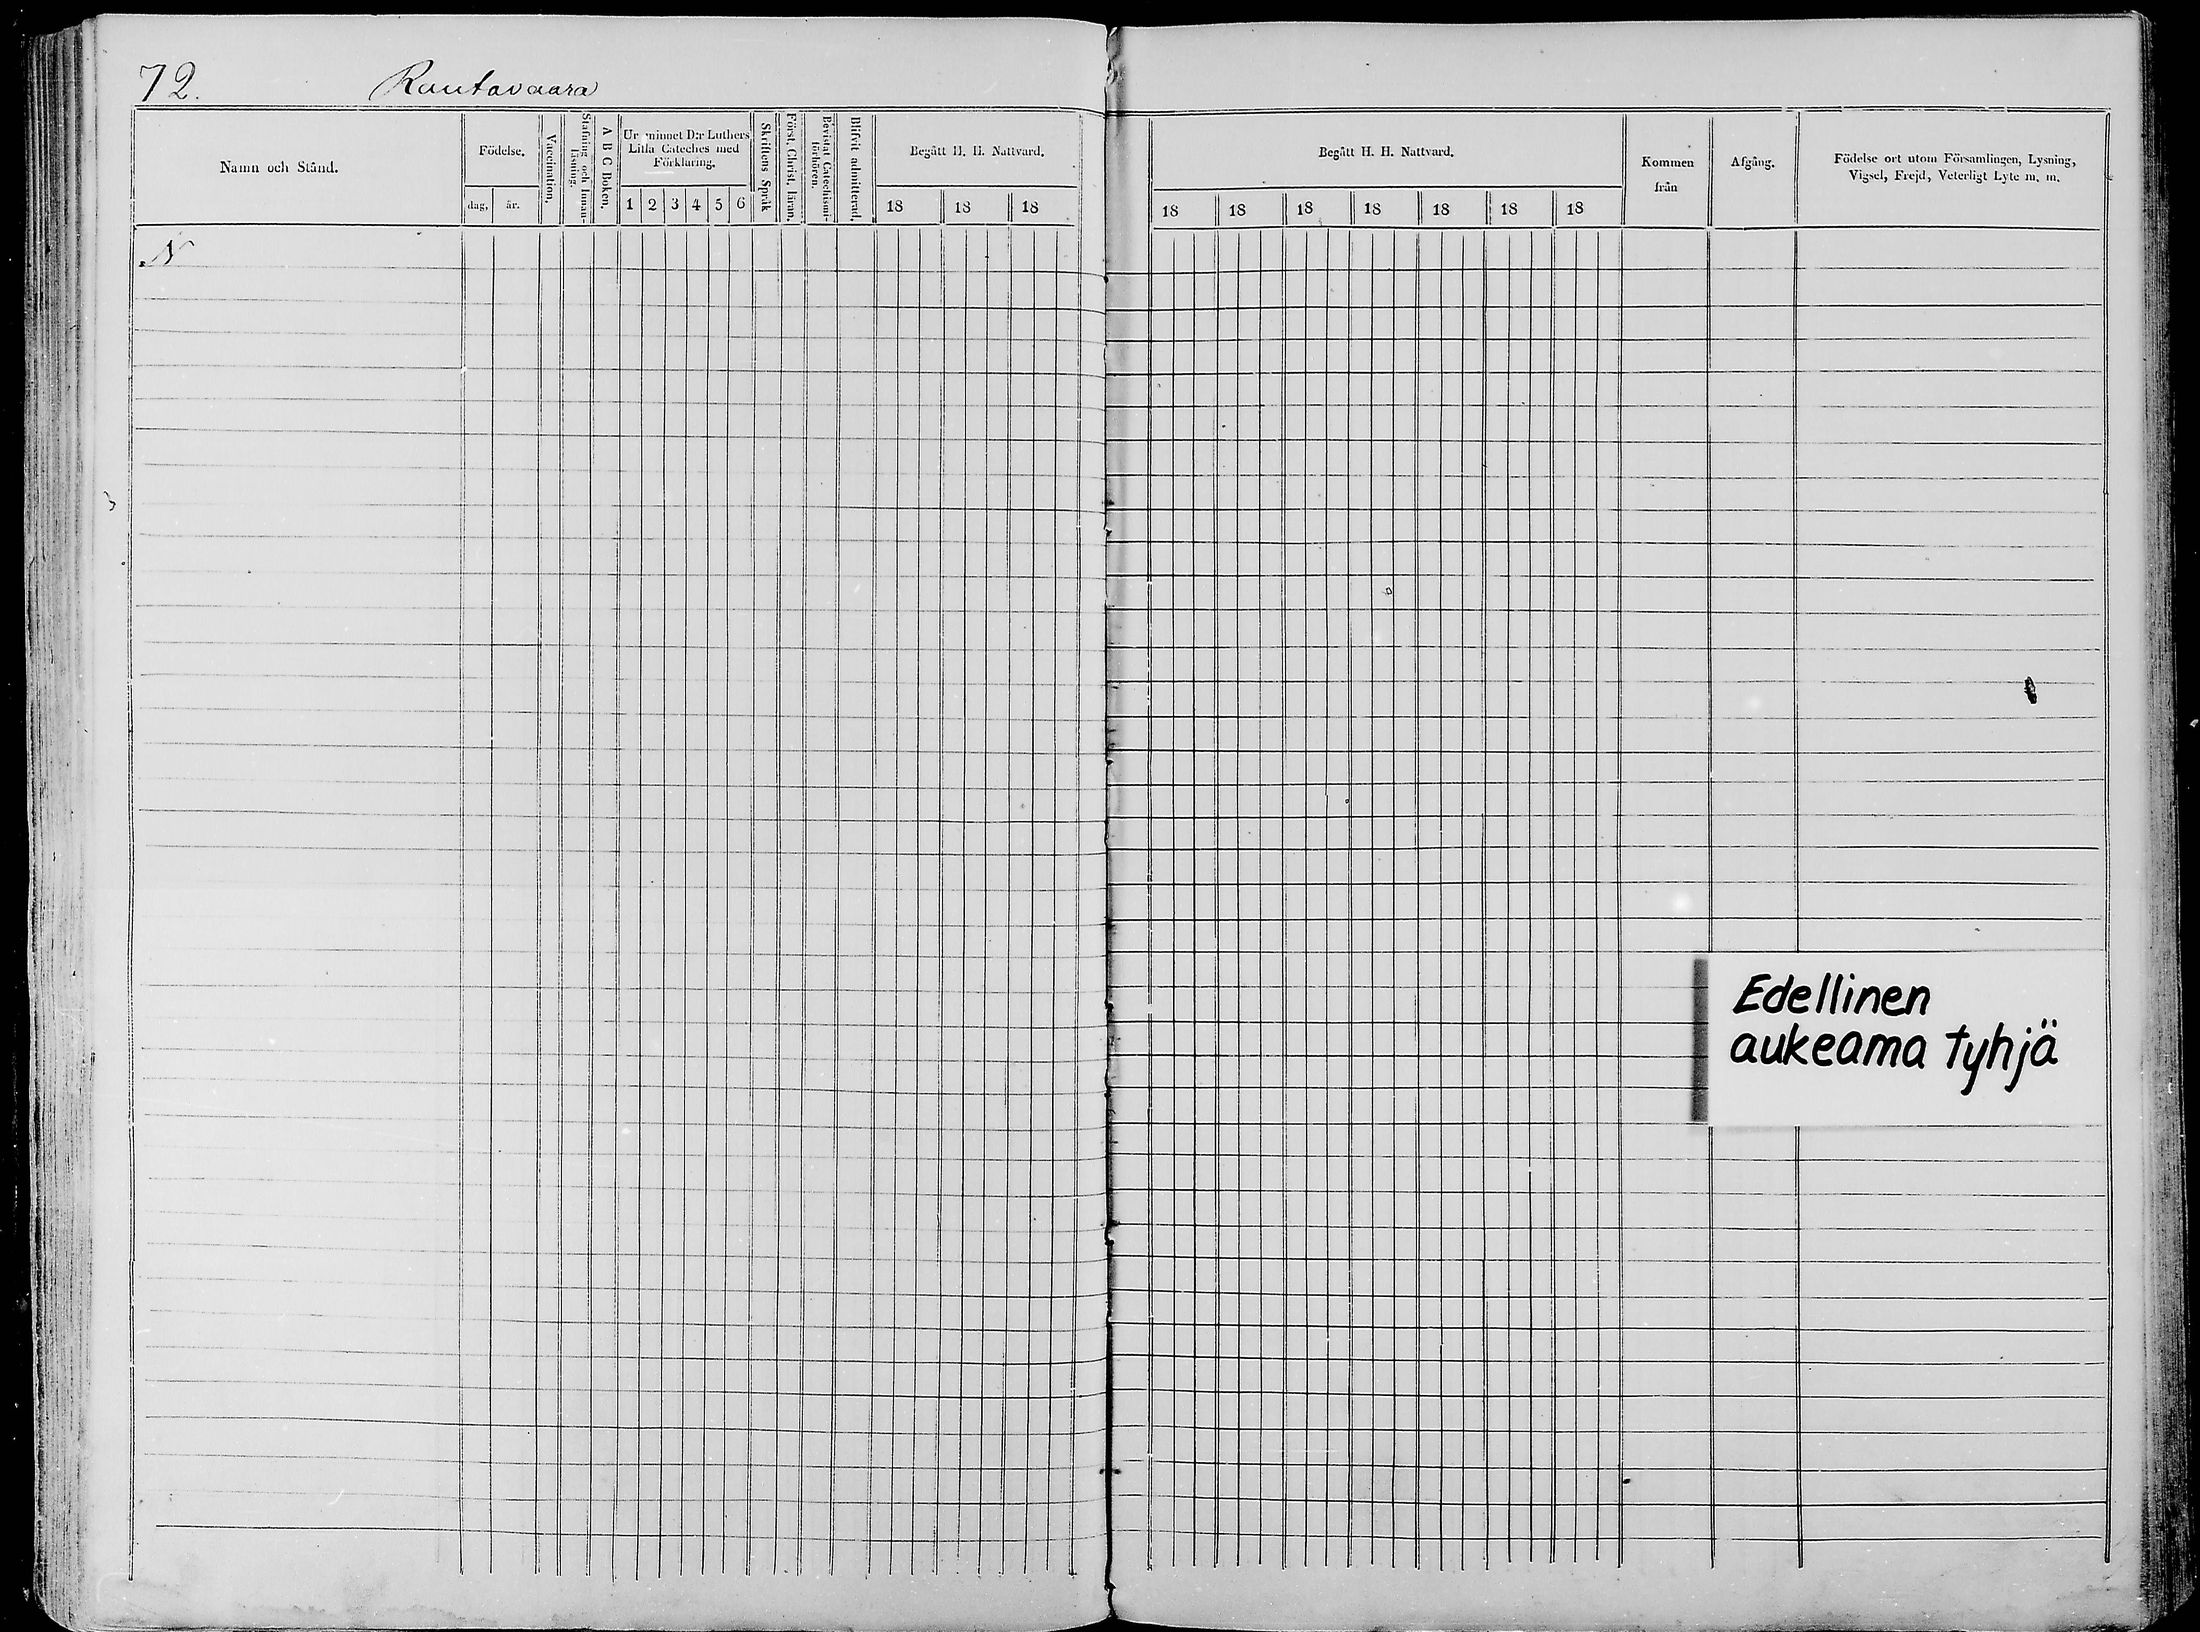 72. Rautavaara
Namn och Stånd.
Födelse.
dag,
år.
Vaccination.
Stafning och Innan-
läsning.
A B C Boken.
Ur minnet D:r Luthers
Lilla Cateches med
Förklaring.
1 2 3 4 5 6
Skriftens Språk
Först. Christ. läran.
Bevistat Catechismi-
förhören.
Blifvit admitterad.
Begått H. H. Nattvard.
18 18 18
Begått H. H. Nattvard.
18 18 18 18 18 18 18
Kommen
från
Afgång.
Födelse ort utom Församlingen, Lysning,
Vigsel, Frejd, Veterligt Lyte m. m.
N
Edellinen
aukeama tyhjä